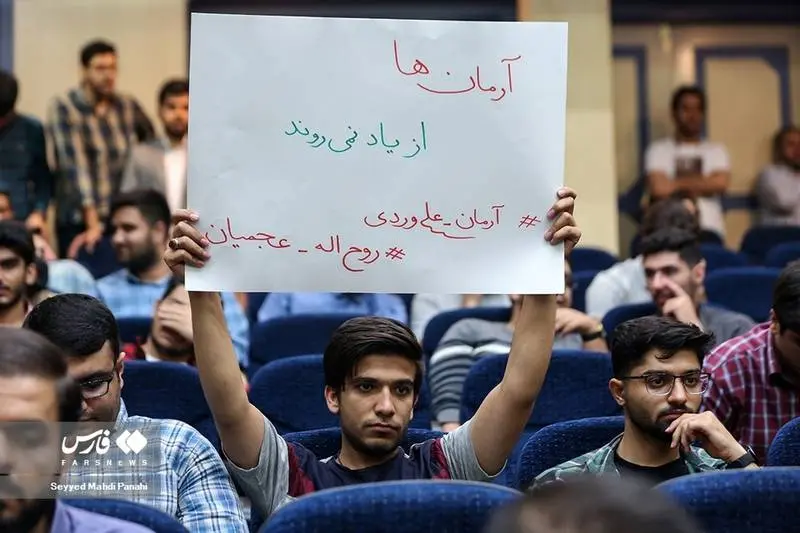 آرمان ها
از یاد نمی روند
# آرمان_علی وردی
# روح اله_عجمیان
فارس
FARSNEWS
Seyyed Mahdi Panahi